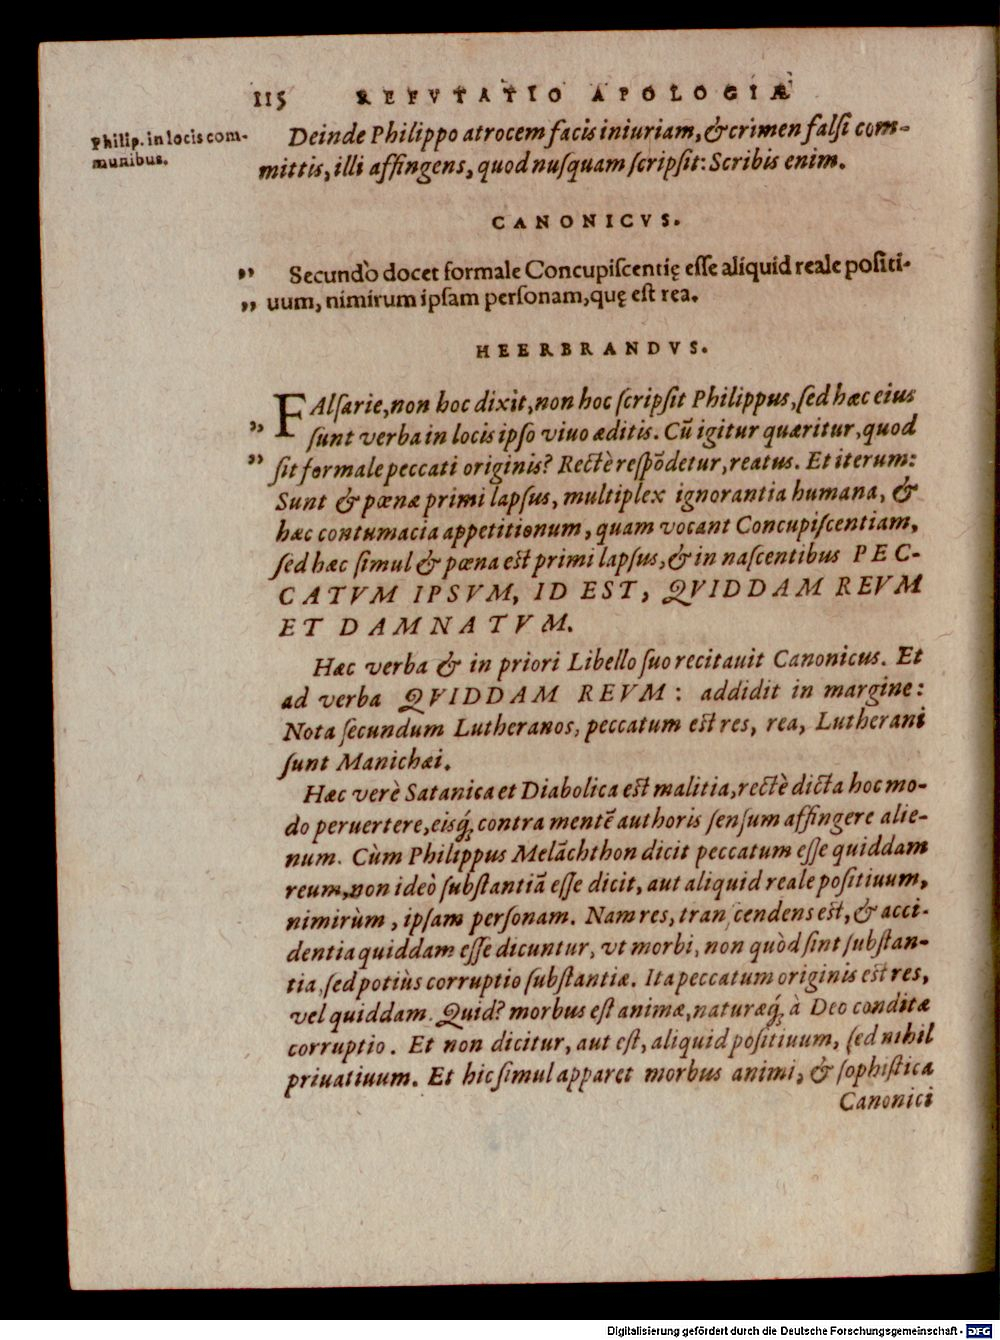 115 REFVTATIO APOLOGIÆ
Philip. in locis com-
munibus.
Deinde Philippo atrocem facis iniuriam, & crimen falſi com-
mittis, illi affingens, quod nuſquam ſcripſit: Scribis enim.
CANONICVS.
„ Secundò docet formale Concupiſcentię eſſe aliquid reale poſiti-
„ uum, nimirum ipſam perſonam, quę eſt rea.
HEERBRANDVS.
FAlſarie, non hoc dixit, non hoc ſcripſit Philippus, ſed hæc eius
„ ſunt verba in locis ipſo viuo æditis. Cū igitur quæritur, quod
„ ſit formale peccati originis? Rectè reſpōdetur, reatus. Et iterum:
Sunt & pœnæ primi lapſus, multiplex ignorantia humana, &
hæc contumacia appetitionum, quam vocant Concupiſcentiam,
ſed hæc ſimul & pœna eſt primi lapſus, & in naſcentibus PEC-
CATVM IPSVM, ID EST, QVIDDAM REVM
ET DAMNATVM.
Hæc verba & in priori Libello ſuo recitauit Canonicus. Et
ad verba QVIDDAM REVM: addidit in margine:
Nota ſecundum Lutheranos, peccatum eſt res, rea, Lutherani
ſunt Manichæi.
Hæc verè Satanica et Diabolica eſt malitia, rectè dicta hoc mo-
do peruertere, eisq́; contra mentē authoris ſenſum affingere alie-
num. Cùm Philippus Melāchthon dicit peccatum eſſe quiddam
reum, non ideò ſubſtantiā eſſe dicit, aut aliquid reale poſitiuum,
nimirùm, ipſam perſonam. Nam res, tranſcendens eſt, & acci-
dentia quiddam eſſe dicuntur, vt morbi, non quòd ſint ſubſtan-
tia, ſed potiùs corruptio ſubſtantiæ. Ita peccatum originis eſt res,
vel quiddam. Quid? morbus eſt animæ, naturæq́; à Deo conditæ
corruptio. Et non dicitur, aut eſt, aliquid poſitiuum, ſed nihil
priuatiuum. Et hic ſimul apparet morbus animi, & ſophiſtica
Canonici
Digitalisierung gefördert durch die Deutsche Forschungsgemeinschaft - DFG